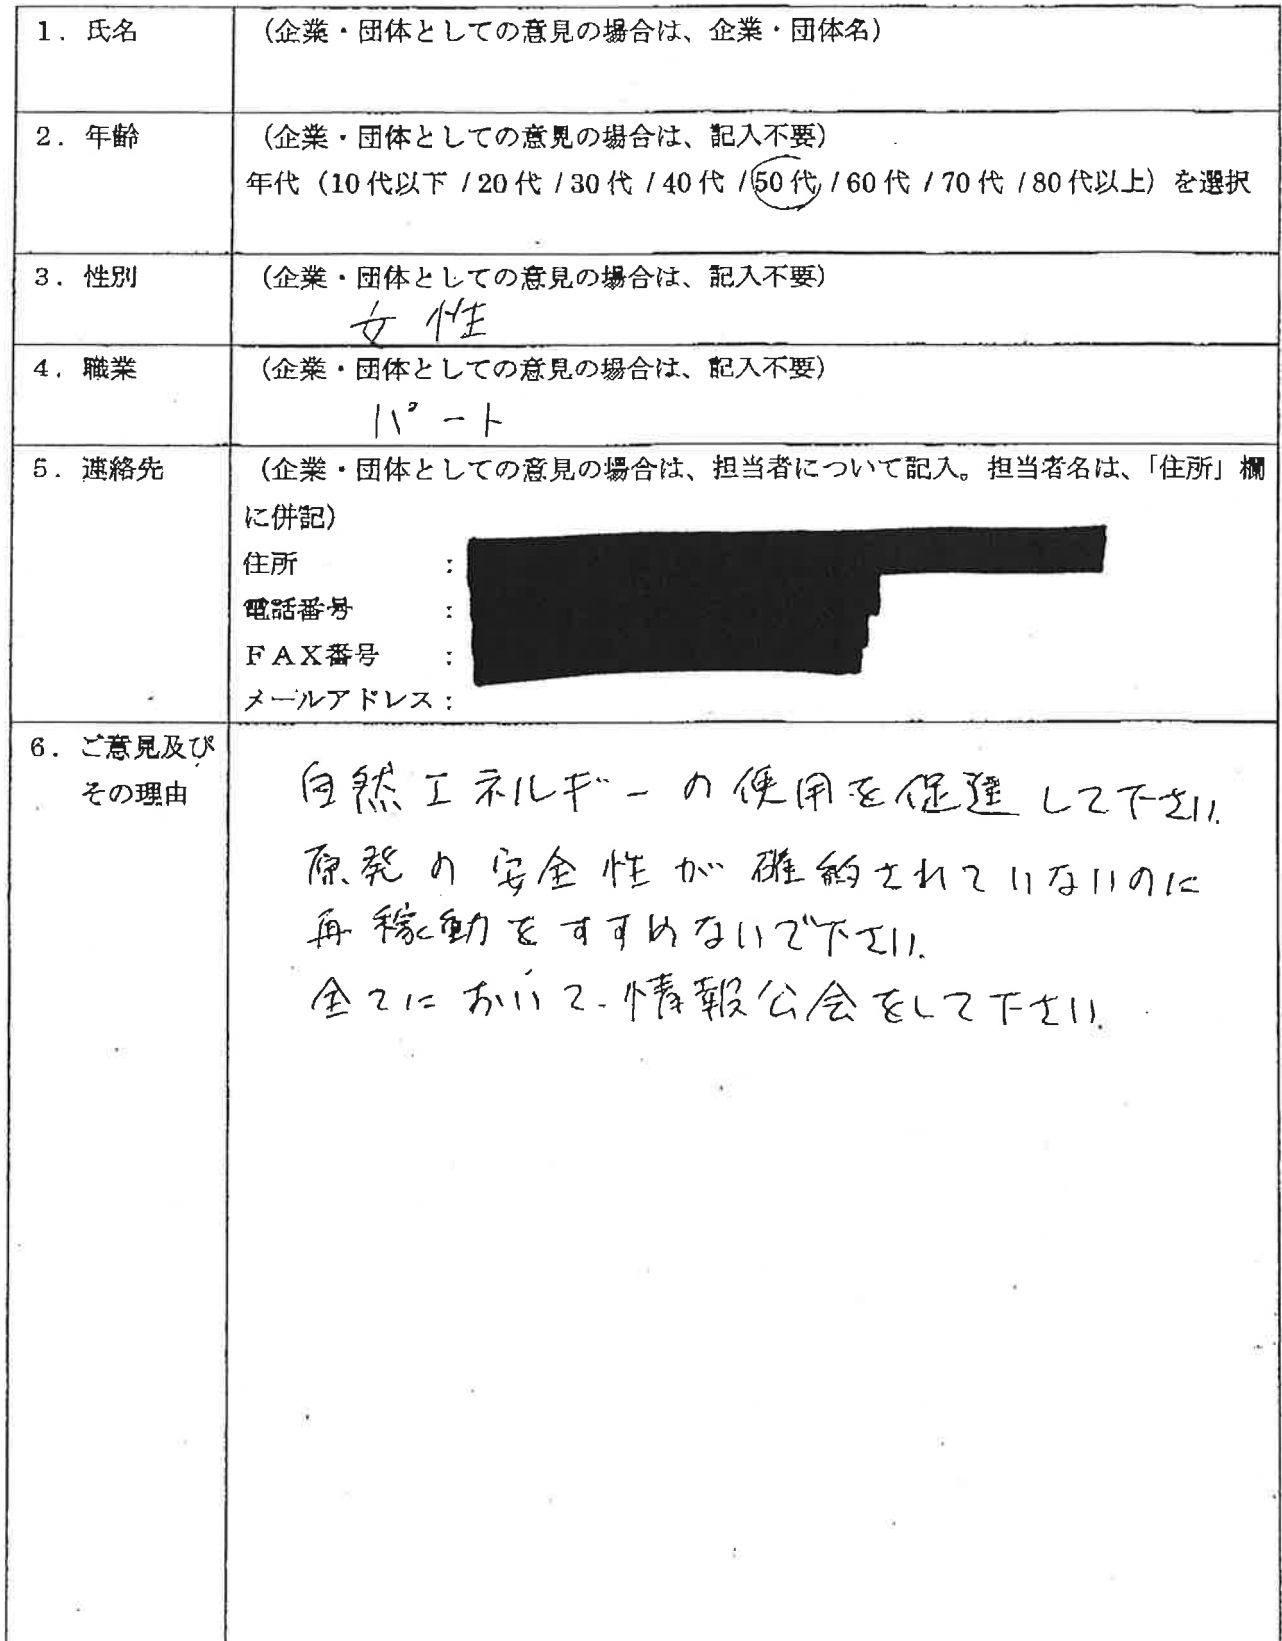 1. 氏名
(企業・団体としての意見の場合は、企業・団体名)
2. 年齢
(企業・団体としての意見の場合は、記入不要)
年代(10代以下 / 20代 / 30代 / 40代 / 50代 / 60代 / 70代 / 80代以上)を選択
3. 性別
(企業・団体としての意見の場合は、記入不要)
女性
4. 職業
(企業・団体としての意見の場合は、記入不要)
パート
5. 連絡先
(企業・団体としての意見の場合は、担当者について記入。担当者名は、「住所」欄
に併記)
住所 :
電話番号 :
FAX番号 :
メールアドレス:
6. ご意見及び
その理由
自然エネルギーの使用を促進して下さい。
原発の安全性が確約されていないのに
再稼動をすすめないで下さい。
全てにおいて、情報公会をして下さい。